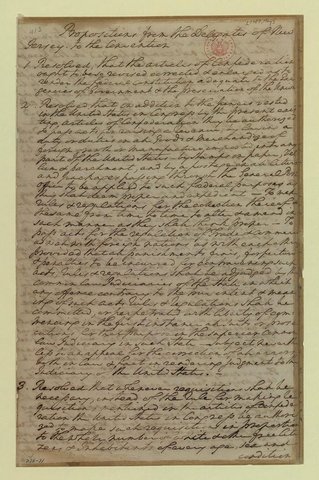 Propositions from the Delegates of New
Jersey. To the Convention
1. Resolved, that the articles of Confederation
ought to be revised corrected & enlarged so as to
render the federal constitution adequate to the Exi-
gencies of Government & the preservation of the Union
2. Resolved that in addition to the powers vested
in the United States in Congress by the present exis-
ting articles of Confederation they be authorized
to pass acts for raising a revenue by levying a
duty or duties on all Goods & Merchandizes of
foreign growth or manufacture imported into any
part of the United States, by stamps on paper Vel-
lum or parchment, and by a postage on all letters
and packages passing through the General Post
office, to be applied to such federal purposes as
they shall deem proper and expedient, To make
rules & regulations for the collection thereof
the same from time to time to alter & amend in
such manner as they shall think proper. To
pass acts for the regulation of Trade & commerce
as well with foreign nations as with each other,
provided that all punishments, fines, forfeitures
& penalties to be incurred by contravening such
acts, Rules & regulations shall be adjudged by the
common Law Judiciary of the State in which
any offence contrary to the true intent & meaning
of such acts Rules & regulations shall be
committed or perpetrated with liberty of com-
mencing in the first instance all suits or prose-
cutions for that purpose in the Superior Common
Law Judiciary in such State. Subject neverthe-
less to an appeal for the correction of all errors
both in Law & fact in rendering Judgment to the
Judiciary of the United States.
3. Resolved that whenever requisitions shall be
necessary, instead of the rule for making re-
quisitions mentioned in the articles of Confede-
ration the United States in Congress be authori-
zed to make such requisitions in proportion
to the whole number of white & other free citi-
zens & Inhabitants of every age Sex and
condition